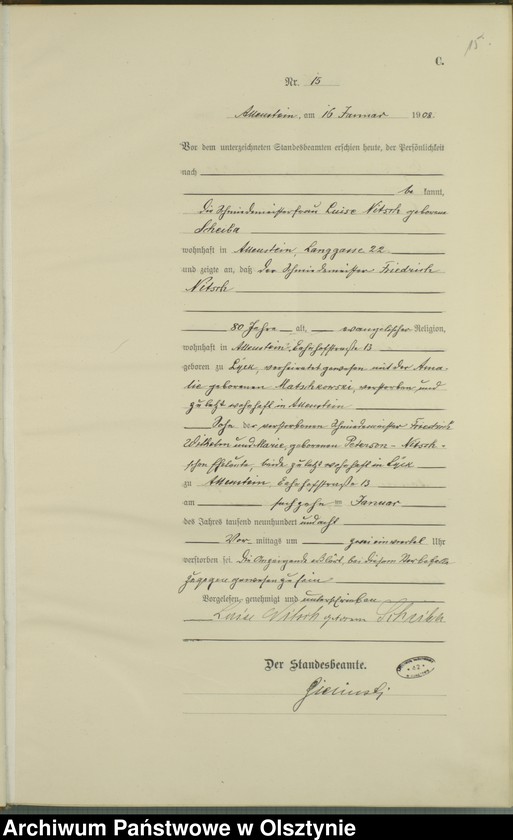 15.
C.
Nr. 15
Allenstein, am 16 Januar 1908.
Vor dem unterzeichneten Standesbeamten erschien heute, der Persönlichkeit
nach
be kannt,
die Schmiedemeisterfrau Luise Nitsch geborene
Scheiba
wohnhaft in Allenstein, Langgasse 22
und zeigte an, daß der Schmiedemeister Friedrich
Nitsch
80 Jahre alt, evangelischer Religion,
wohnhaft in Allenstein, Bahnhofstraße 13
geboren zu Lyck, verheiratet gewesen mit der Ama-
lie geborenen Matschkowski, verstorben und
zuletzt wohnhaft in Allenstein
Sohn der verstorbenen Schmiedemeister Friedrich
Wilhelm und Marie, geborenen Peterson-Nitsch-
schen Eheleute, beide zuletzt wohnhaft in Lyck
zu Allenstein, Bahnhofstraße 13
am sechzehn ten Januar
des Jahres tausend neunhundert und acht
Vor mittags um zwei einviertel Uhr
verstorben sei. Die Anzeigende erklärt, bei diesem Sterbefalle
zugegen gewesen zu sein
Vorgelesen, genehmigt und unterschrieben
Luise Nitsch geborene Scheiba
Der Standesbeamte.
Archiwum Państwowe w Olsztynie